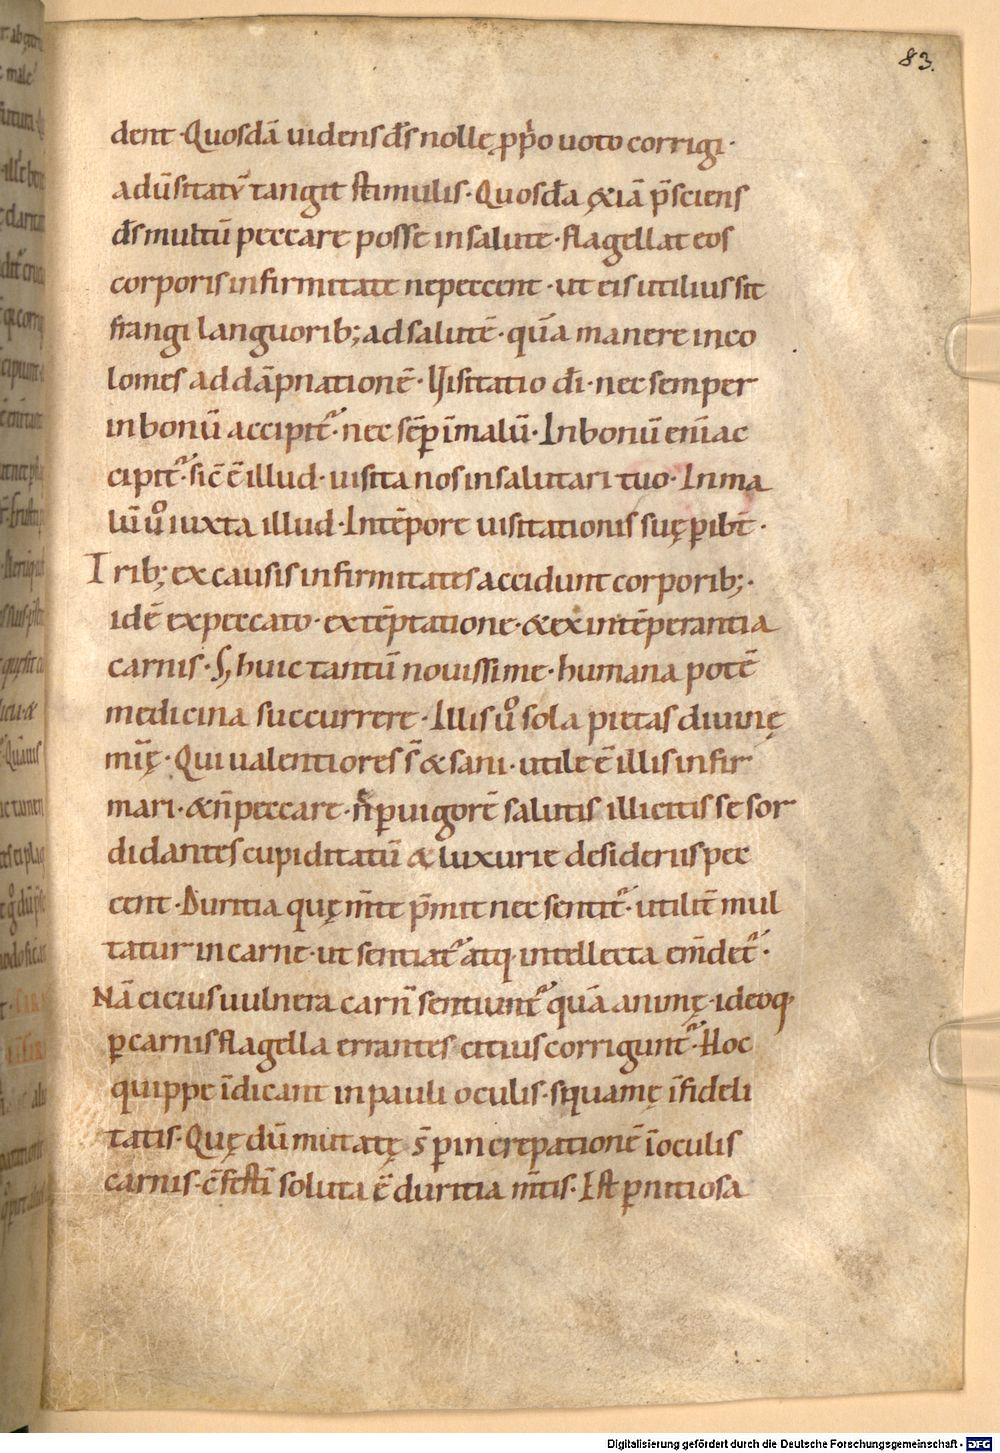 83.
dent · Quosdā uidens d̄s nolle ꝓpͥo uoto corrigi ·
adūsitatꝭ tangit stimulis · Quosdā &iā p̄sciens
d̄s multū peccare posse in salute · flagellat eos
corporis infirmitate ne peccent · ut eis utilius sit
frangi languorib; ad salutē · quā manere inco
lomes ad dāpnationē · Uisitatio dī · nec semper
in bonū accipit᷑ · nec sēꝑ ī malū · In bonū enī ac
cipit᷑ · sic̄ ē illud · uisita nos in salutari tuo · In ma
lū ūo iuxta illud · In tēpore uisitationis suę ꝑibt̄ ·
Trib; ex causis infirmitates accidunt corporib; ·
idē ex peccato · ex tēptatione · & ex intēperantia
carnis · S; huic tantū nouissime · humana potē
medicina succurrere · Illis ūo sola pietas diuinę
mīę · Qui ualentiores s̄ & sani · utile ē illis infir
mari · & n̄ peccare · n̄ ꝑ uigorē salutis illicitis se sor
didantes cupiditatū & luxurie desideriis pec
cent · Duritia quę m̄te p̄mit nec sentit᷑ · utilit̄ mul
tatur in carne · ut sentiat᷑ atq; intellecta em̄det᷑ ·
Nā cicius uulnera carn̄ sentiunt᷑ quā animę · ideoq;
ꝑ carnis flagella errantes citius corrigunt᷑ · Hoc
quippe īdicant in pauli oculis · squamę īfideli
tatis · Quę dū mutatę s̄ ꝑ increpationē ī oculis
carnis · c̄festī soluta ē duritia m̄tis · Est ꝑnitiosa
Digitalisierung gefördert durch die Deutsche Forschungsgemeinschaft - DFG